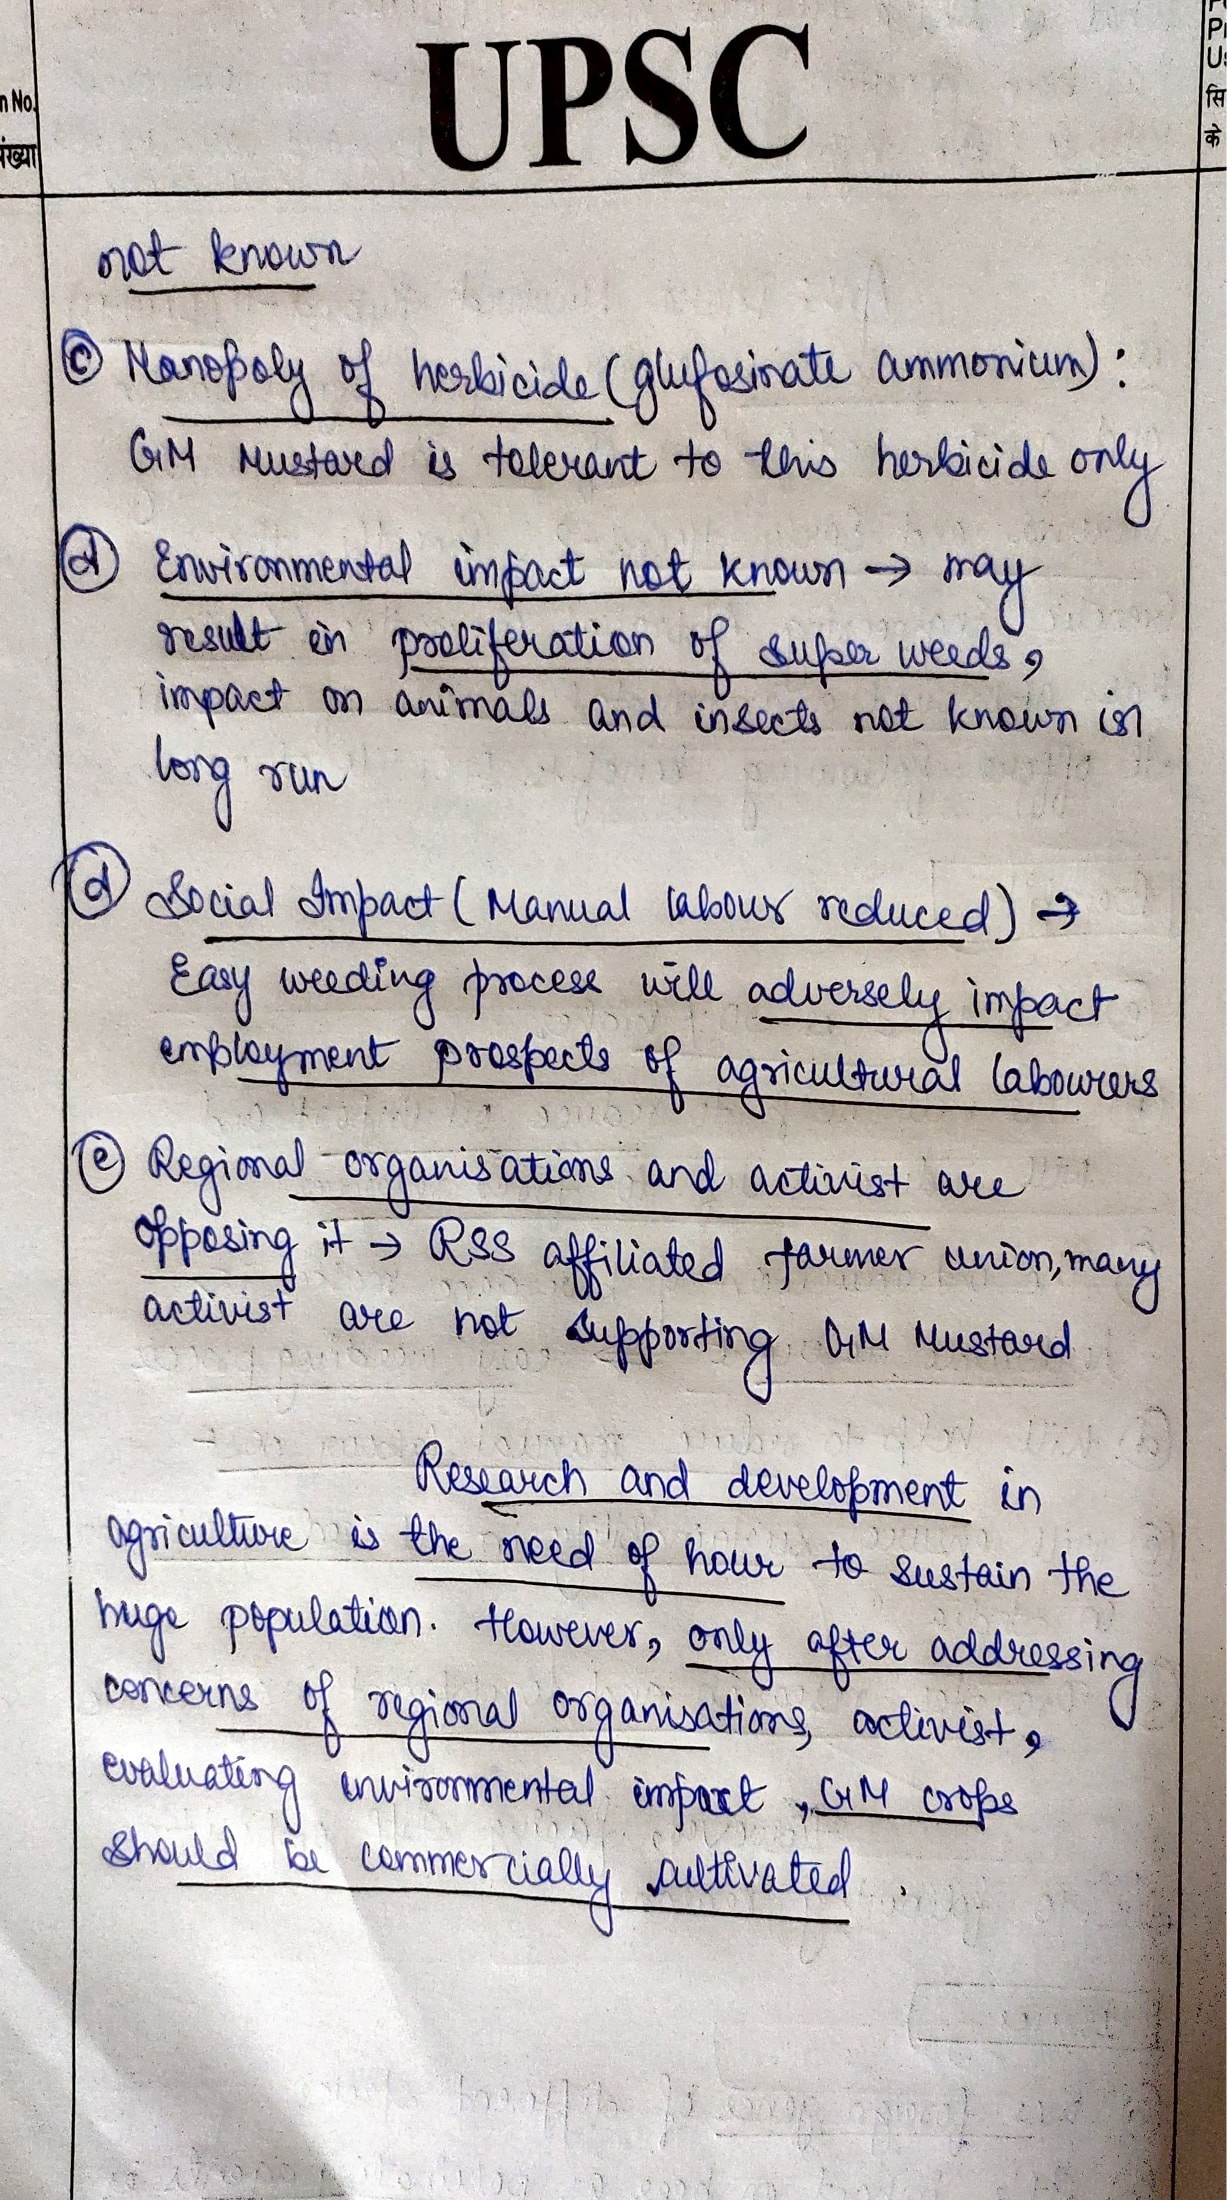 UPSC
n No.
ंख्या
सि
के
not known
(c) Monopoly of herbicide (glufosinate ammonium):
GM Mustard is tolerant to this herbicide only
(d) Environmental impact not known → may
result in proliferation of super weeds,
impact on animals and insects not known in
long run
(d) Social Impact (Manual labour reduced) →
Easy weeding process will adversely impact
employment prospects of agricultural labourers
(e) Regional organisations and activist are
opposing it → RSS affiliated farmer union, many
activist are not supporting GM Mustard
Research and development in
agriculture is the need of hour to sustain the
huge population. However, only after addressing
concerns of regional organisations, activist,
evaluating environmental impact, GM crops
should be commercially cultivated.